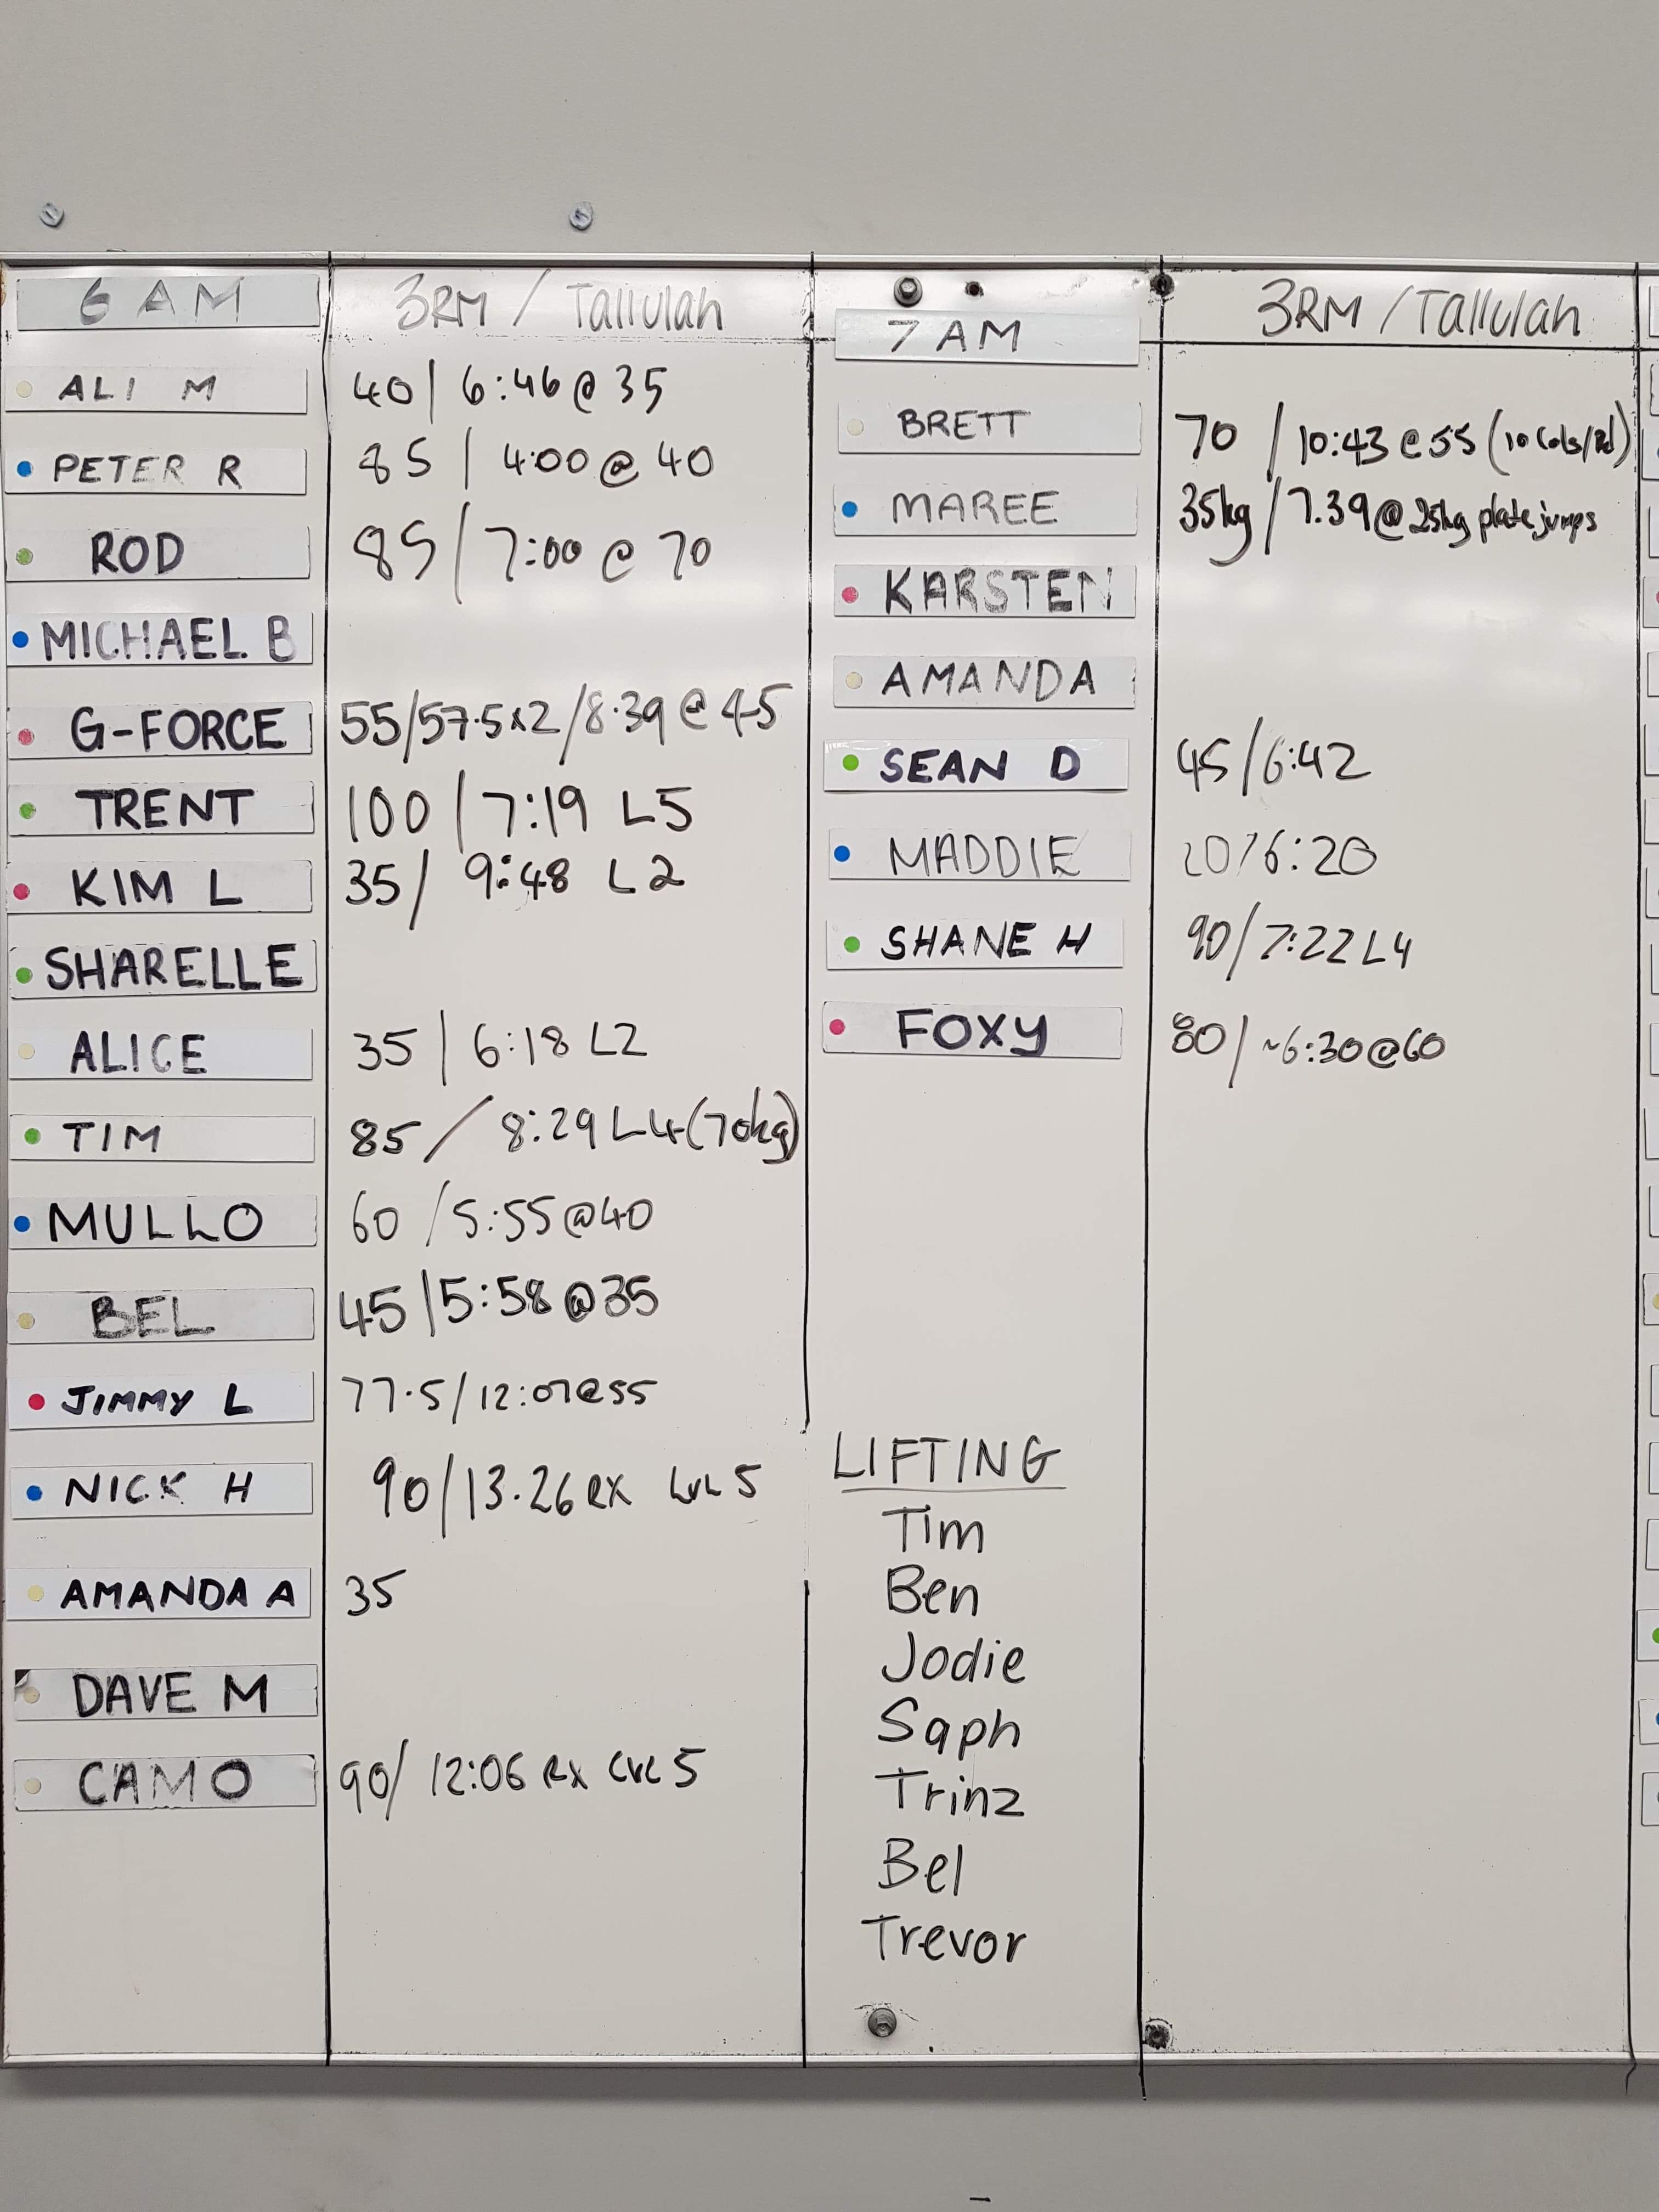 6 AM 3RM / Tallulah
ALI M 40 / 6:46 @ 35
PETER R 85 / 4:00 @ 40
ROD 85 / 7:00 @ 70
MICHAEL B
G-FORCE 55/57.5x2/8.39 @ 45
TRENT 100 / 7:19 L5
KIM L 35 / 9:48 L2
SHARELLE
ALICE 35 / 6:18 L2
TIM 85 / 8:29 L4 (70kg)
MULLO 60 / 5:55 @ 40
BEL 45 / 5:58 @ 35
JIMMY L 77.5 / 12:07 @ 55
NICK H 90 / 13.26 RX LVL 5
AMANDA A 35
DAVE M
CAMO 90 / 12:06 RX LVL 5
7 AM 3RM / Tallulah
BRETT 70 / 10:43 @ 55 (10
MAREE 35kg / 7.39 @ 25kg plate jumps
KARSTEN
AMANDA
SEAN D 45 / 6:42
MADDIE 20 / 6:20
SHANE H 90 / 7:22 L4
FOXY 80 / ~6:30 @ 60
LIFTING
Tim
Ben
Jodie
Saph
Trinz
Bel
Trevor